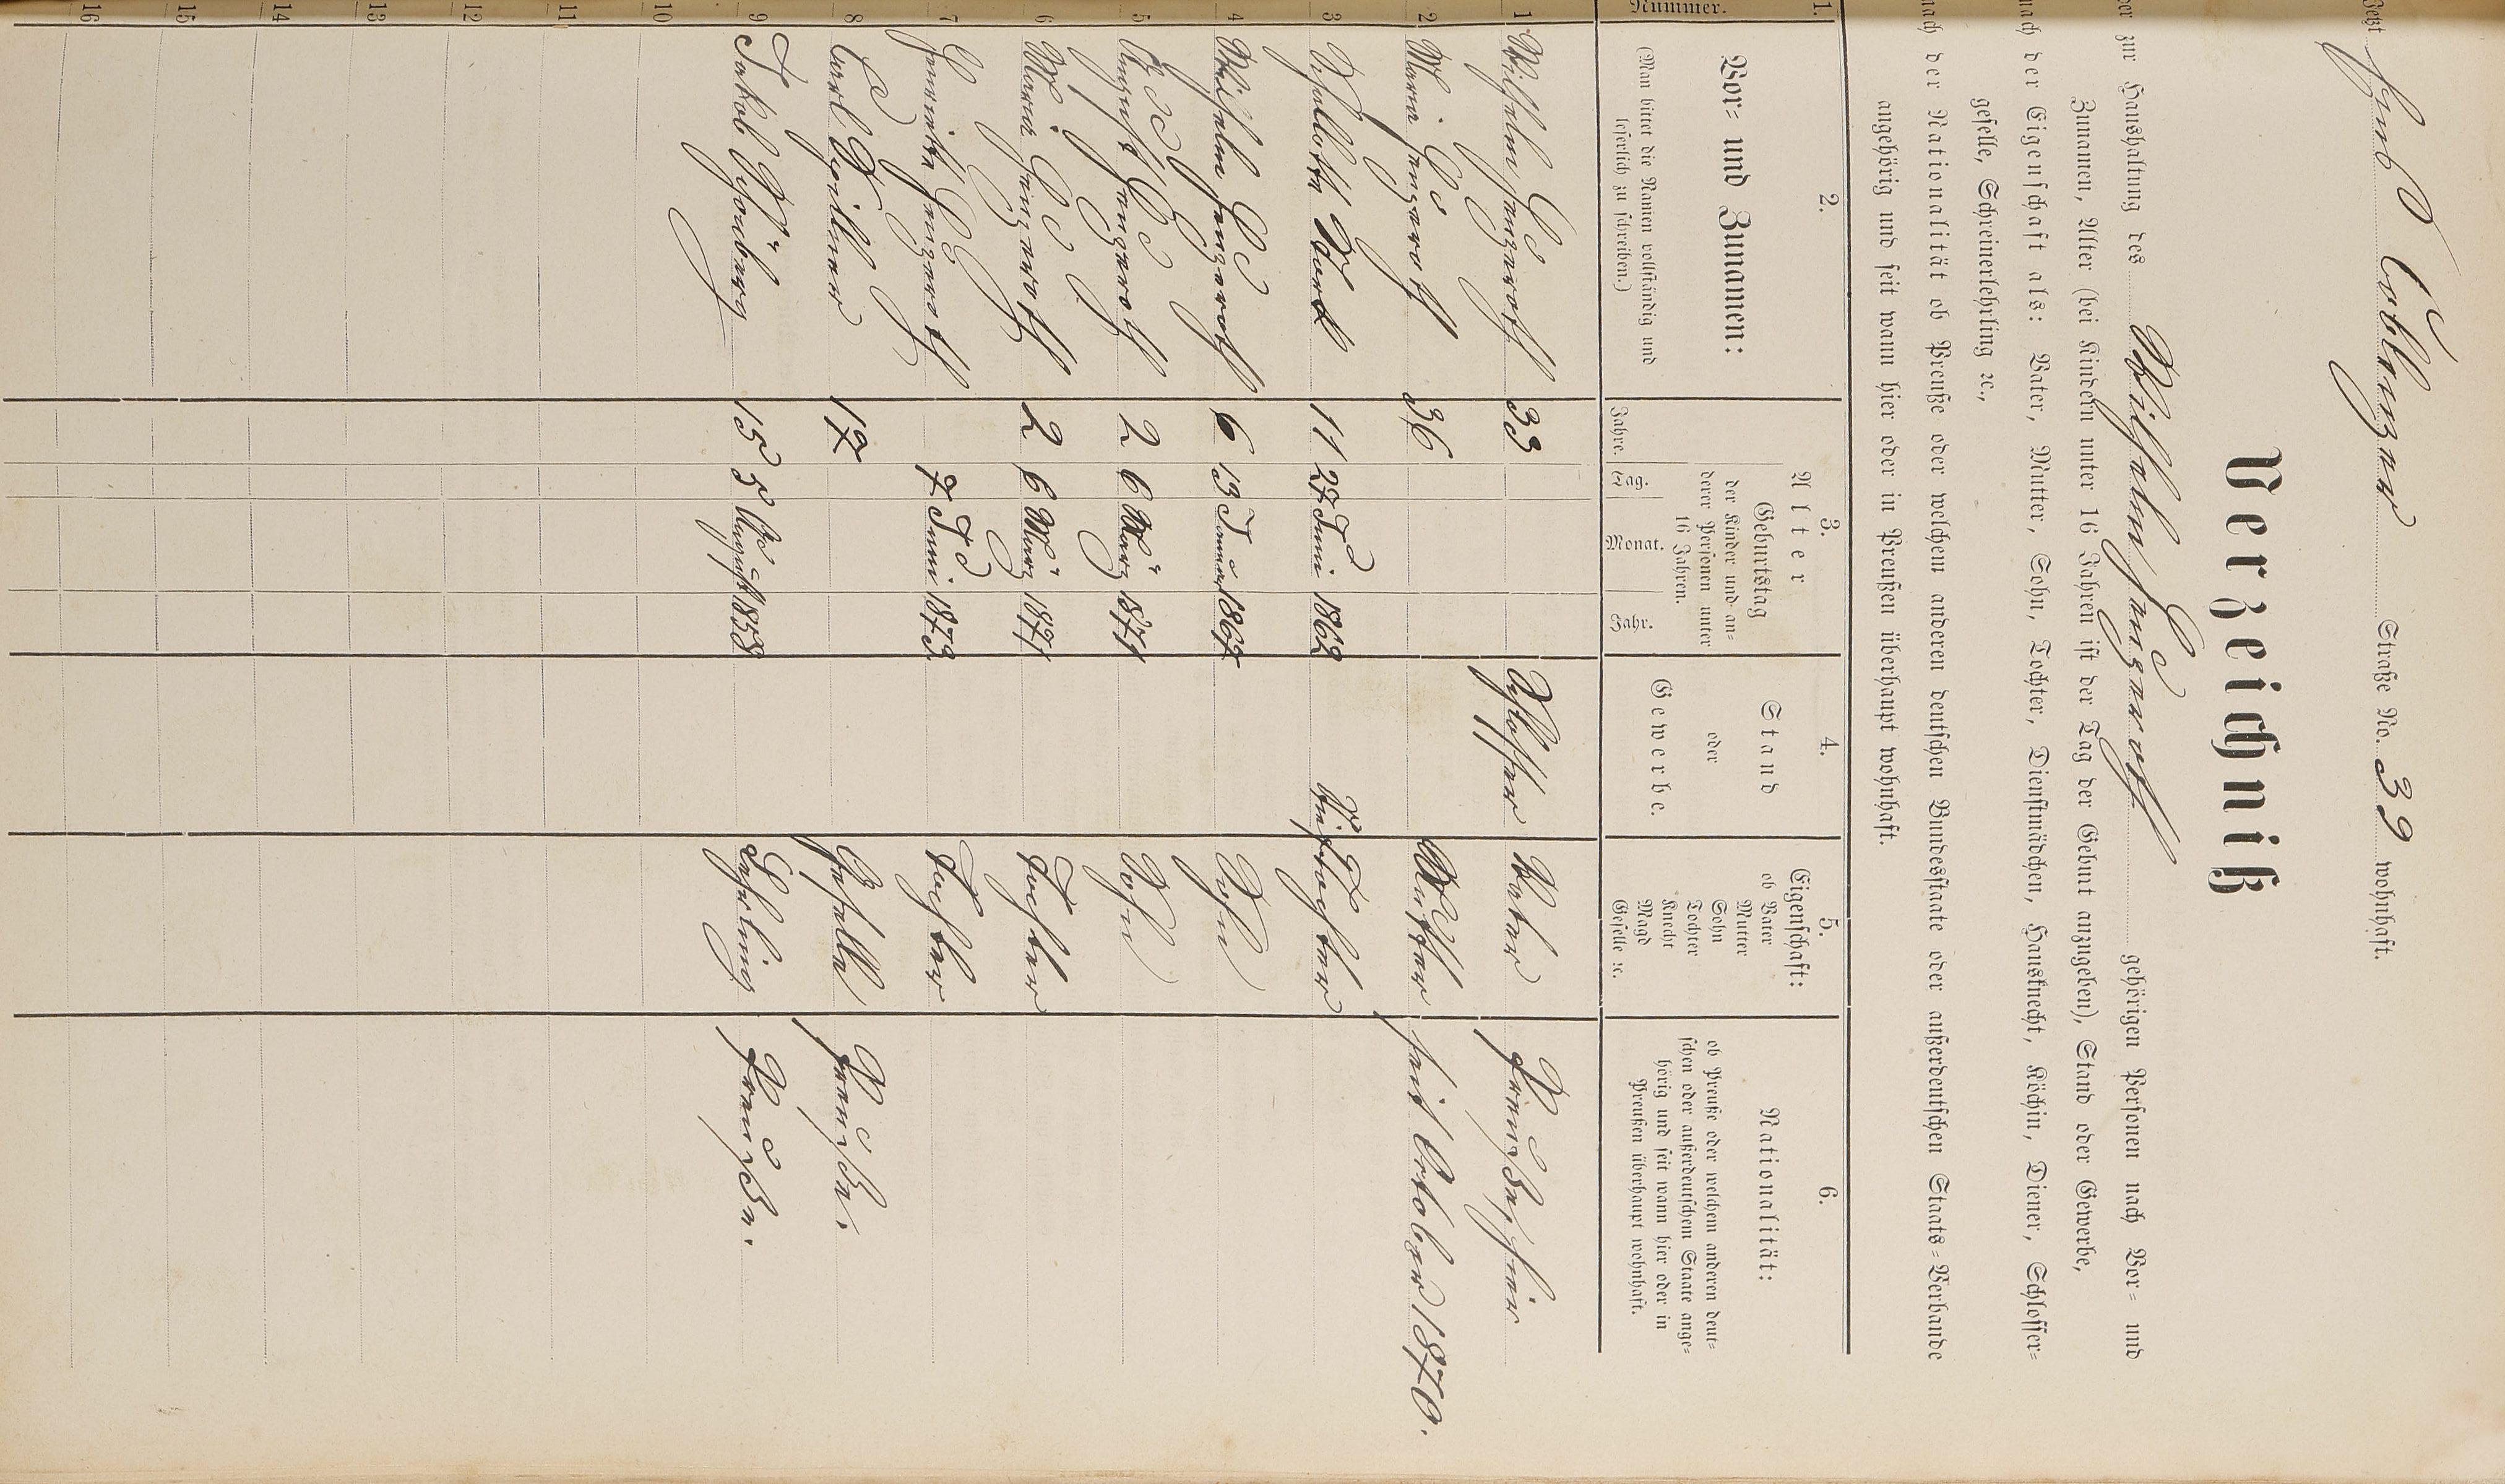 Jetzt Coblenzer Straße No. 39 wohnhaft.
Verzeichniß
der zur Haushaltung des Wilhelm gehörigen Personen nach Vor= und
Zunamen, Alter (bei Kindern unter 16 Jahren ist der Tag der Geburt anzugeben), Stand oder Gewerbe,
nach der Eigenschaft als: Vater, Mutter, Sohn, Tochter, Dienstmädchen, Hausknecht, Köchin, Diener, Schlosser=
geselle, Schreinerlehrling ꝛc.,
nach der Nationalität ob Preuße oder welchem anderen deutschen Bundesstaate oder außerdeutschen Staats=Verbande
angehörig und seit wann hier oder in Preußen überhaupt wohnhaft.
1. 2. 3. 4. 5. 6.
Nummer.
Vor= und Zunamen:
(Man bittet die Namen vollständig und
leserlich zu schreiben.)
Alter
Jahre.
Geburtstag
der Kinder und an=
derer Personen unter
16 Jahren.
Tag. Monat. Jahr.
Stand
oder
Gewerbe.
Eigenschaft:
ob Vater
Mutter
Sohn
Tochter
Knecht
Magd
Geselle ꝛc.
Nationalität:
ob Preuße oder welchem anderen deut=
schen oder außerdeutschem Staate ange=
hörig und seit wann hier oder in
Preußen überhaupt wohnhaft.
1 Wilhelm 33 Schlosser Vater Preuße, hier
2 Maria 36 Mutter seit October 1870.
3 11 27 Juni 1862 Stieftochter
4 Wilhelm 6 13 Januar 1867 Sohn
5 August 2 6 März 1871 Sohn
6 Maria 2 6 März 1871 Tochter
7 Henriette 7 Juni 1873 Tochter
8 Carl 17 Geselle Preuße.
9 Jakob Schönberg 15 5 August 1858 Lehrling Preuße.
10
11
12
13
14
15
16